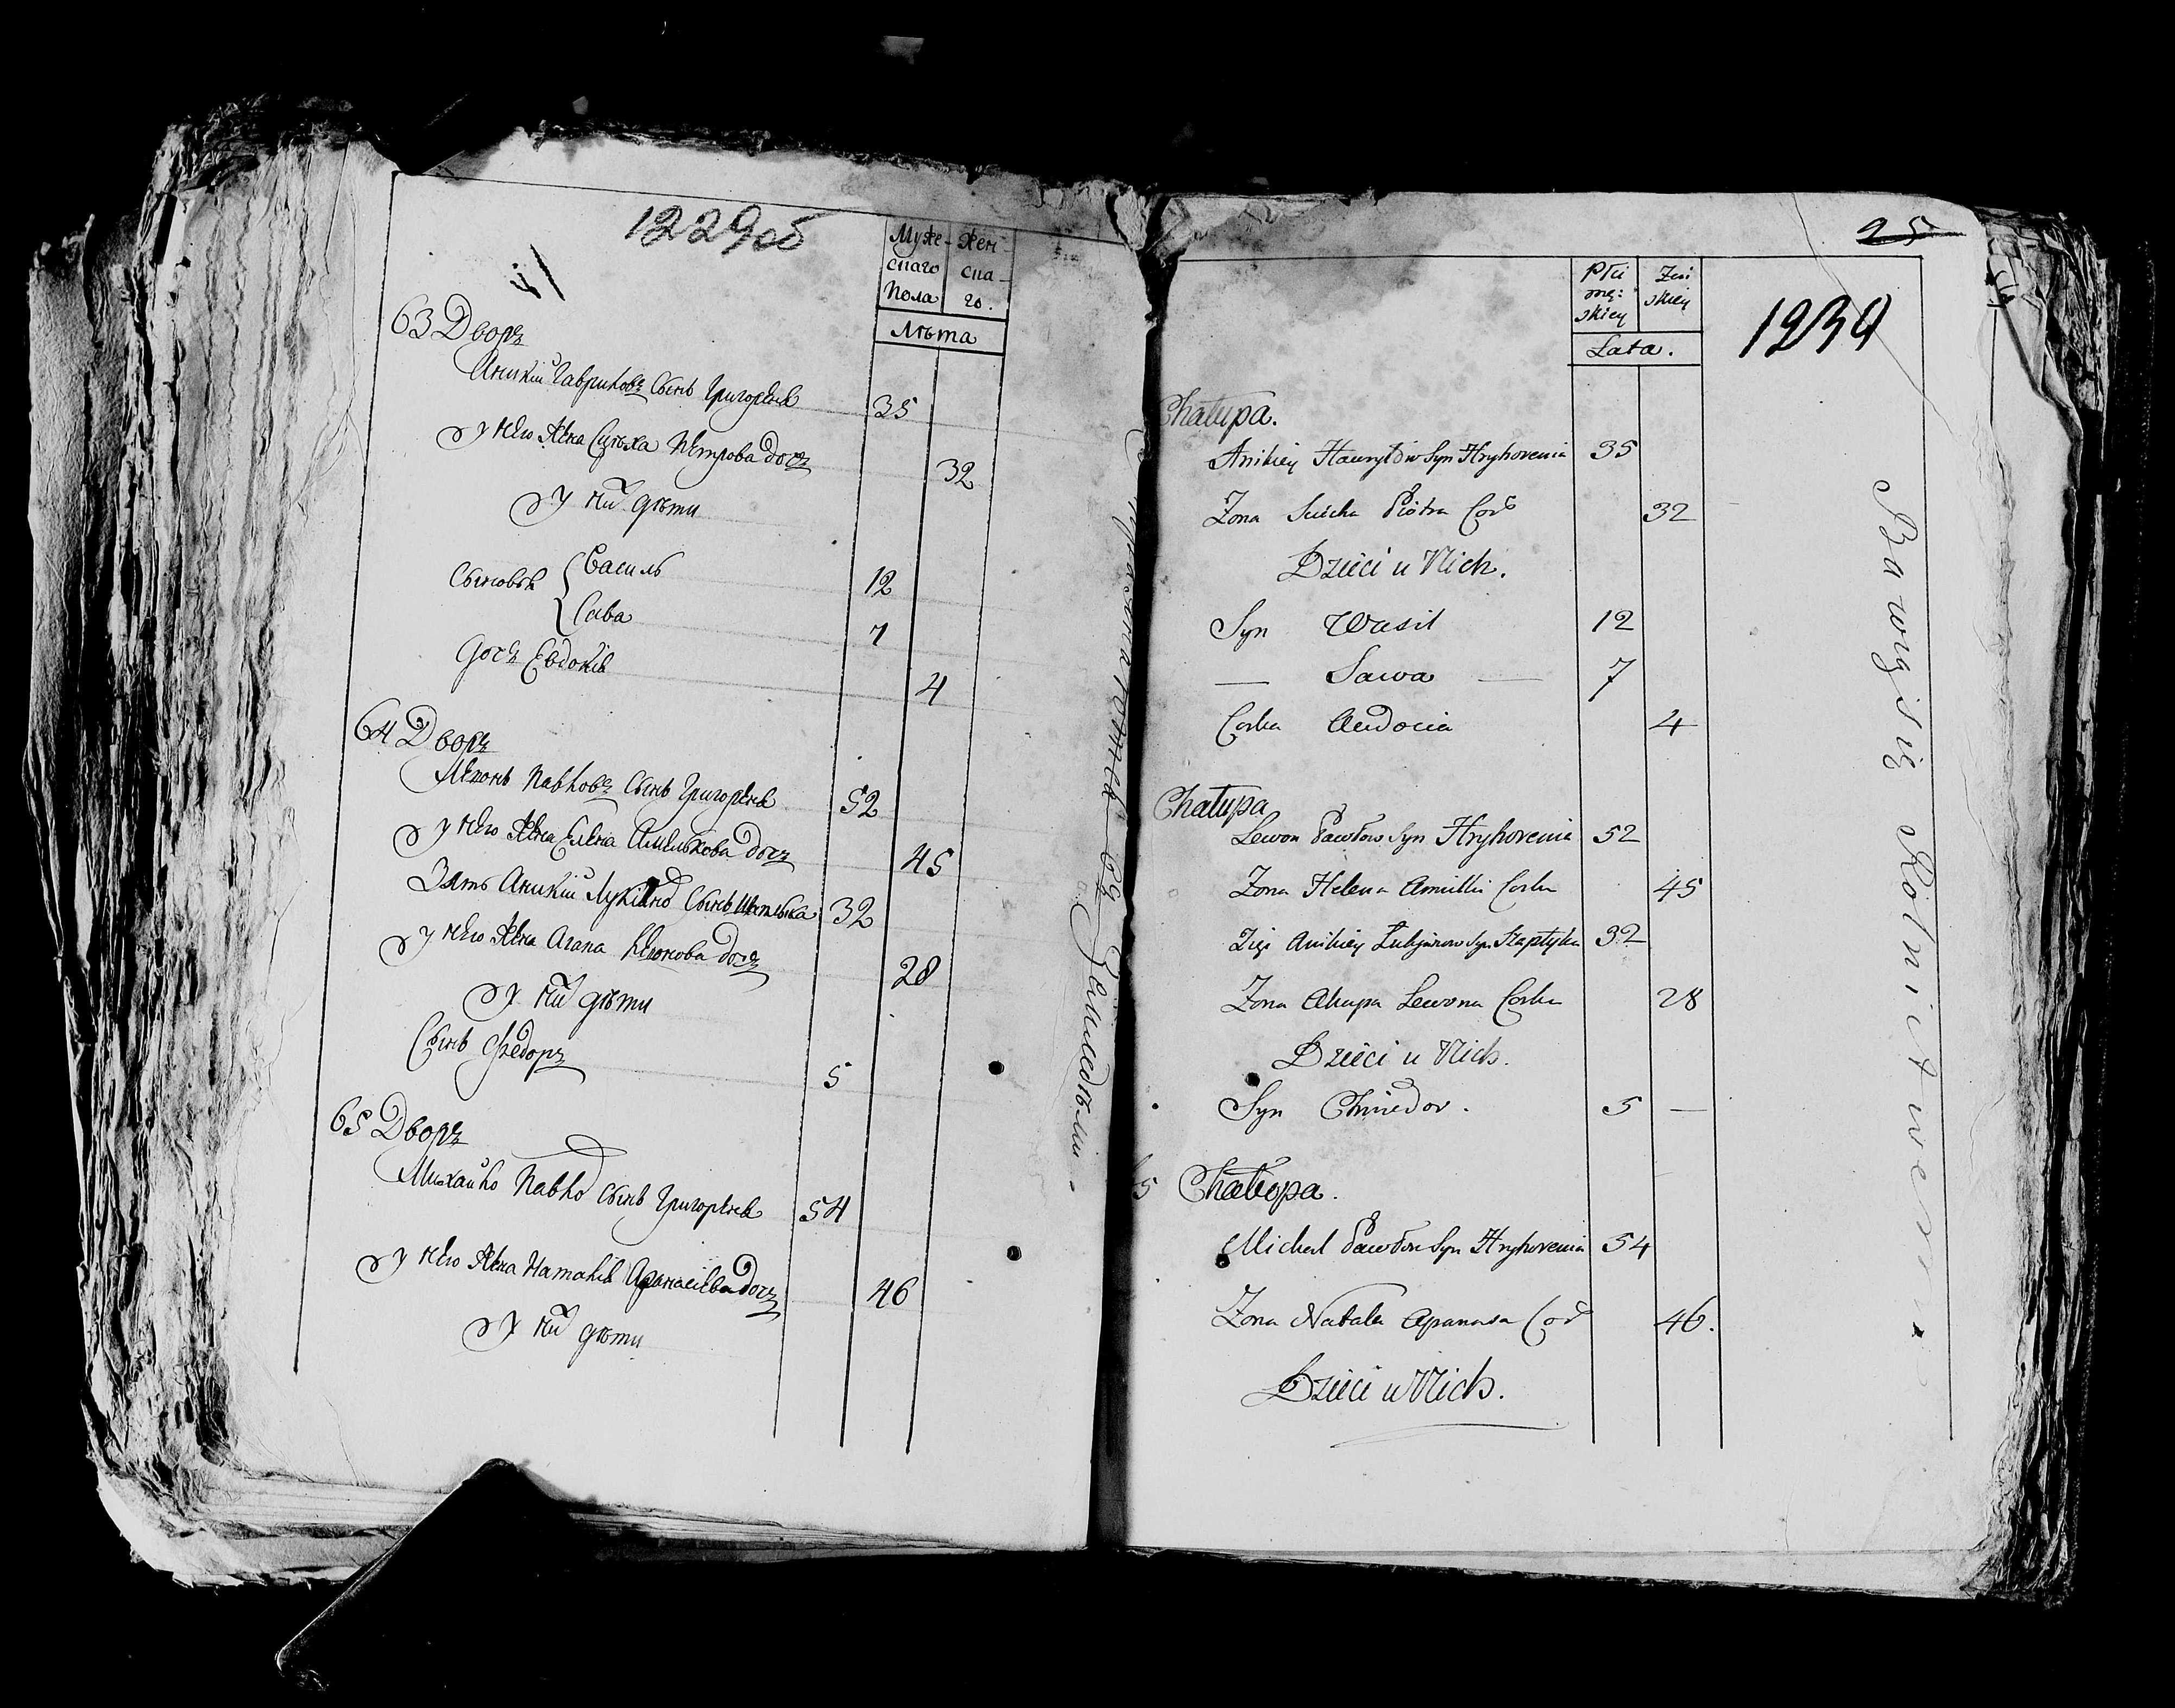 1229об
Муже-
скаго
Пола
Жен-
ска-
го.
Лѣта
63 Дворъ
Аникій Гавриловъ Сынъ Григореня 35
У Него Жена Сцѣха Петрова дочь 32
У Них дѣти
Сыновья
Василь 12
Сава 7
Дочь Евдокія 4
64 Дворъ
Левонъ Павловъ Сынъ Григореня 52
У Него Жена Елена Амелькова дочь 45
Зять Аникій Лукіяно Сынъ 32
У Него Жена Агапа Левонова дочь 28
У Них дѣти
Сынъ Федоръ 5
65 Дворъ
Михайло Павло Сынъ Григореня 54
У Него Жена Наталія Афанасіева дочь 46
У Них дѣти
Земледѣліи
25
1230
Płci
mę:
skiey
Żeń
skiey
Lata.
Chałupa.
Anikiey Hawryłow Syn Hryhorenia 35
Zona Sciecha Piotra Cor 32
Dzieci u Nich.
Syn Wasil 12
— Sawa — 7
Corka Audocia 4
Chałupa
Lewon Pawłow Syn Hryhorenia 52
Zona Helena Amiełki Corka 45
Zięć Anikiey Łukjanow Syn Szaptyka 32
Zona Ahapa Lewona Corka 28
Dzieci u Nich.
Syn Chwiedor. 5 —
5 Chałupa.
Michał Pawłow Syn Hryhorenia 54
Zona Natala Apanasa Cor 46.
Dzieci u Nich.
Bawy się Rolnictwem